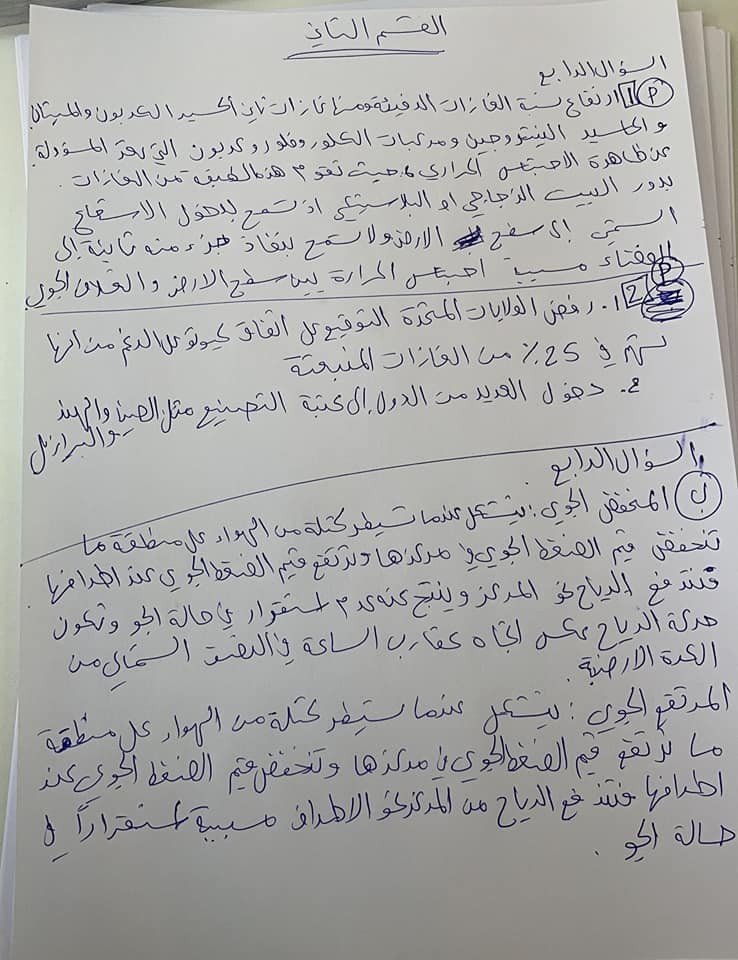 القسم الثاني
السؤال الرابع
P 1 ارتفاع نسبة الغازات الدفيئة ومنها غازات ثاني أكسيد الكربون والميثان
و اكاسيد النيتروجين ومركبات الكلور وفلور وكربون التي تعد المسؤولة
عن ظاهرة الاحتباس الحراري حيث تقوم هذه الطبقة من الغازات
بدور البيت الزجاجي او البلاستيكي اذ تسمح بدخول الاشعاع
الشمسي إلى سطح الارض ولا تسمح بنفاذ جزء منه ثانية إلى
الفضاء مسببة احتباس الحرارة بين سطح الارض و الغلاف الجوي
P 2 1. رفض الولايات المتحدة التوقيع على اتفاق كيوتو على الرغم من انها
تسهم في 25% من الغازات المنبعثة
2. دخول العديد من الدول إلى عتبة التصنيع مثل الصين والهند والبرازيل
السؤال الرابع
ب المنخفض الجوي : يتشكل عندما تسيطر كتلة من الهواء على منطقة ما
تنخفض قيم الضغط الجوي في مركزها وترتفع قيم الضغط الجوي عند اطرافها
فتندفع الرياح نحو المركز وينتج عنه عدم استقرار في حالة الجو وتكون
حركة الرياح بعكس اتجاه عقارب الساعة في النصف الشمالي من
الكرة الارضية .
المرتفع الجوي : يتشكل عندما تسيطر كتلة من الهواء على منطقة
ما ترتفع قيم الضغط الجوي في مركزها وتنخفض قيم الضغط الجوي عند
اطرافها فتندفع الرياح من المركز نحو الاطراف مسببة استقراراً في
حالة الجو .